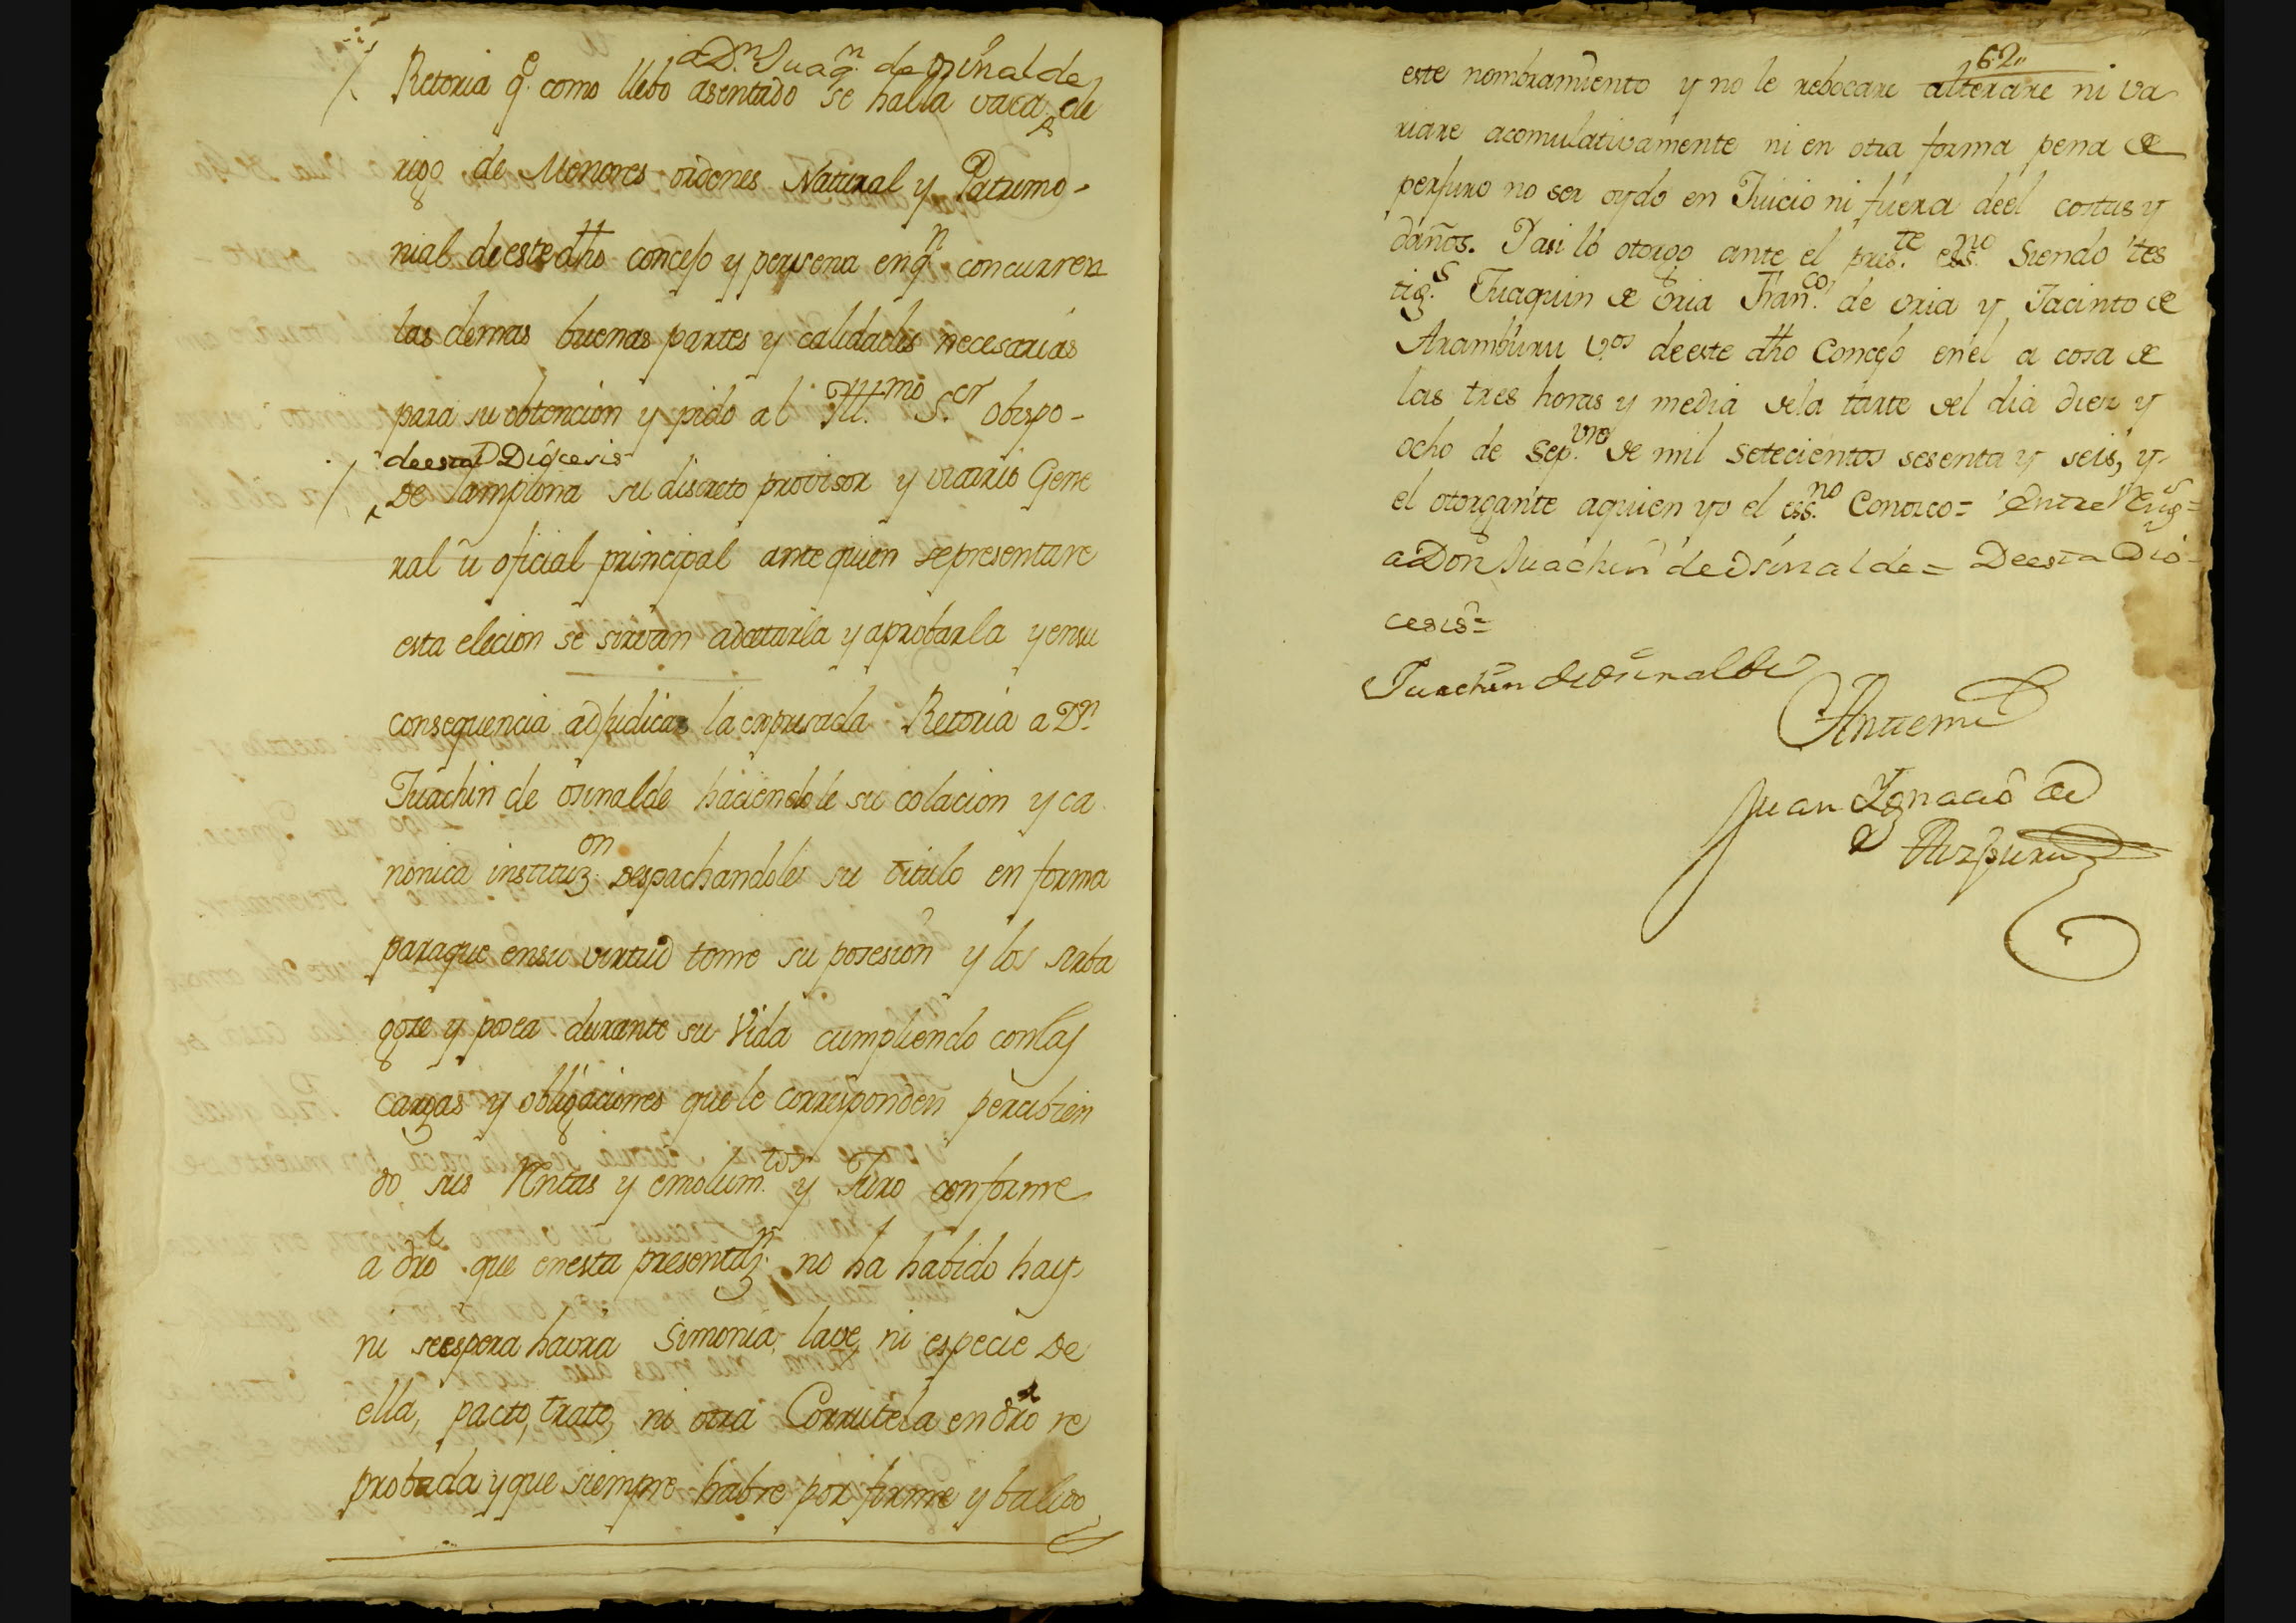 a Dn. Juaqn. de osinalde
Retoria qe. como llebo asentado se halla vaca cle
rigo de Menores ordenes Natural y Patrimo-
nial de este dho concejo y persona en qn. concurren
las demas buenas partes y calidades necesarias
para su obtencion y pido al Illmo. Sor. obispo-
de esta Diocesis
De Pamplona su discreto provisor y vicario Gene
ral u oficial principal ante quien se presentare
esta elecion se sirvan acetarla y aprobarla y en su
consequencia adjudicar la expresada Retoria a Dn.
Juachin de osinalde haciendole su colacion y ca
nonica instituzon. despachandoles su titulo en forma
para que en su virtud tome su posesion y los sirba
goze y posea durante su Vida cumpliendo con las
cargas y obligaciones que le corresponden percibien
do sus Rentas y emolumtos. y Juro conforme
a dro que en esta presentazn. no ha habido hay
ni se espera havra Simonia, lave, ni especie de
ella, pacto, trato, ni otra Corrutela en dro re
probada y que siempre habre por firme y balido
62
este nombramiento y no le rebocare alterare ni va
riare acomulativamente ni en otra forma pena de
perjuro no ser oydo en Juicio ni fuera de el costas y
daños. Y asi lo otorgo ante el preste. essno. Siendo tes
tigs. Juaquin de Oria Franco. de oria y Jacinto de
Aramburu vos de este dho Concejo en el a cosa de
las tres horas y media de la tarte del dia diez y
ocho de Sepvre. de mil setecientos sesenta y seis, y
el otorgante a quien yo el essno. Conozco = Entre Rengs =
a Don Juachin de Osinalde = De esta Dio
cesis =
Juachin de Osinalde
Ante mi
Juan Ignacio de
Aizpuru